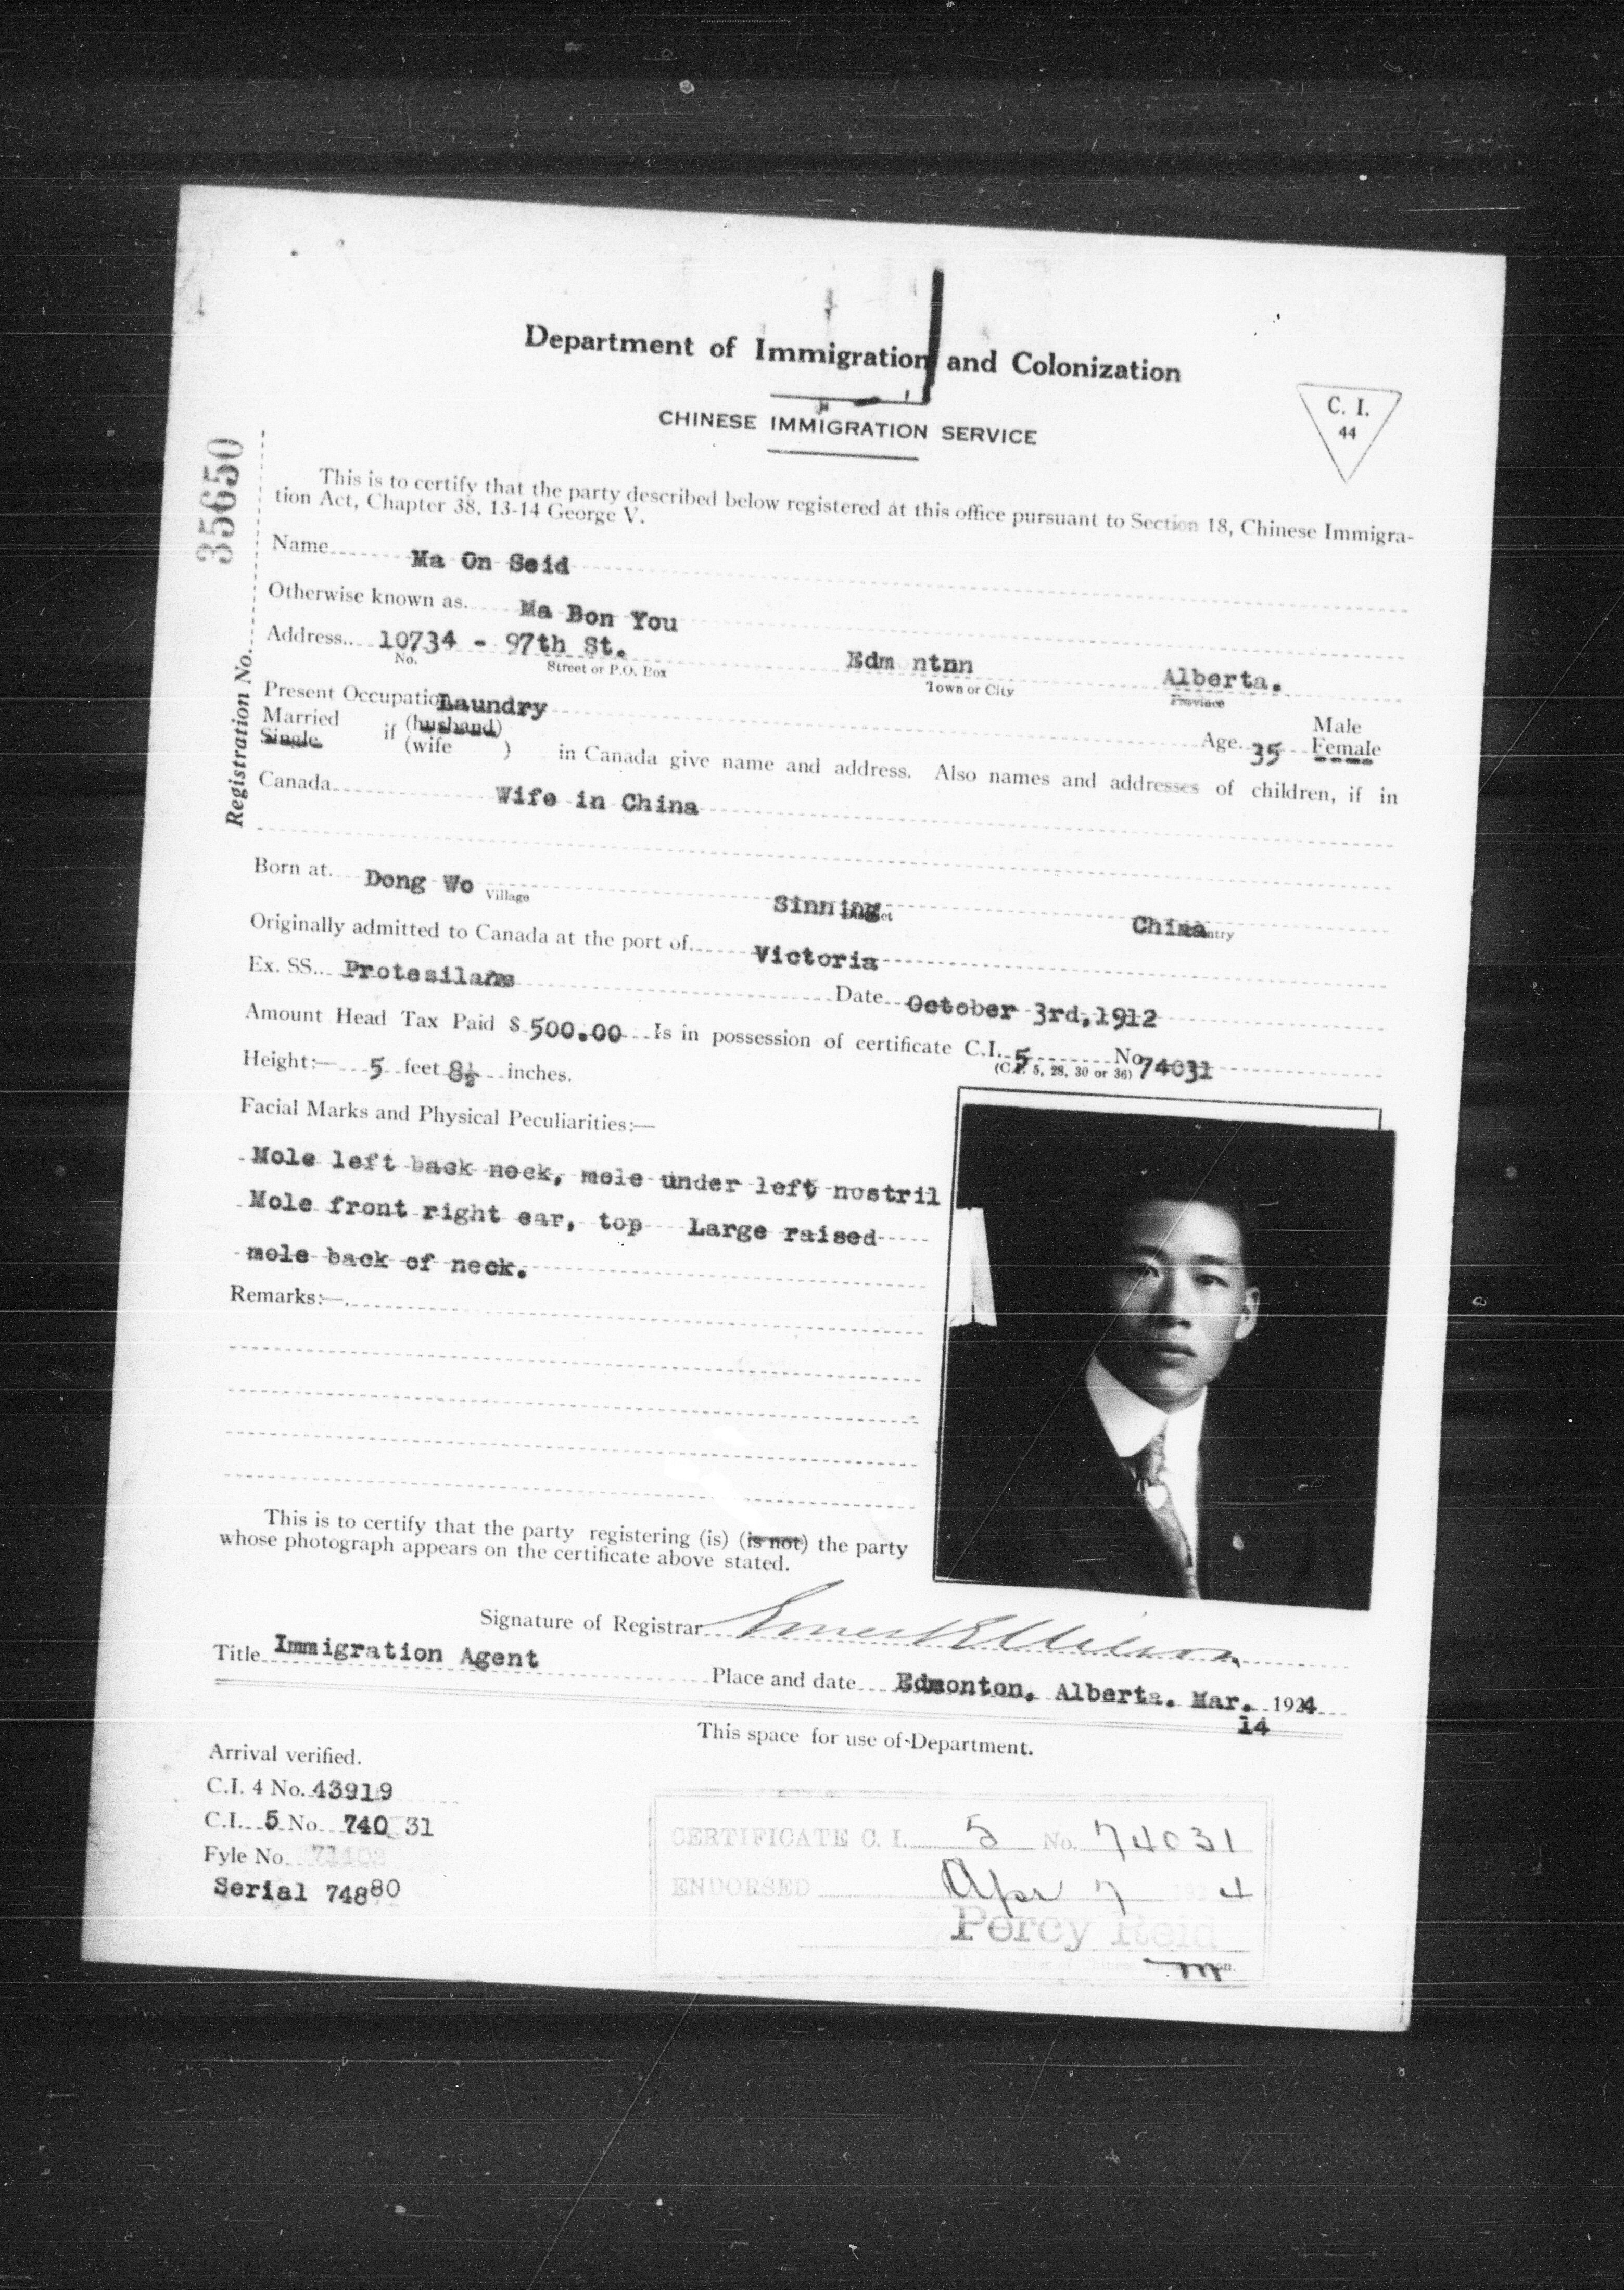 Department of Immigration and Colonization
CHINESE IMMIGRATION SERVICE
C. I.
44
Registration No. 35650
This is to certify that the party described below registered at this office pursuant to Section 18, Chinese Immigra-
tion Act, Chapter 38, 13-14 George V.
Name Ma On Seid
Otherwise known as Ma Bon You
Address 10734 - 97th St. Edm ntnn Alberta.
No. Street or P.O. Box Town or City Province
Present Occupation Laundry Age 35 Male
Female
Married
Single if (husband)
(wife ) in Canada give name and address. Also names and addresses of children, if in
Canada Wife in China
Born at Dong Wo Village Sinning District China Country
Originally admitted to Canada at the port of Victoria
Ex. SS. Protesilaus Date October 3rd, 1912
Amount Head Tax Paid $ 500.00 Is in possession of certificate C.I. 5 No. 74031
(C.I. 5, 28, 30 or 36)
Height:— 5 feet 8½ inches.
Facial Marks and Physical Peculiarities:—
Mole left back neck, mole under left nostril
Mole front right ear, top Large raised
mole back of neck.
Remarks:—
This is to certify that the party registering (is) (is not) the party
whose photograph appears on the certificate above stated.
Signature of Registrar
Title Immigration Agent Place and date Edmonton, Alberta. Mar. 1924
14
This space for use of Department.
Arrival verified.
C.I. 4 No. 43919
C.I. 5 No. 740 31
Fyle No.
Serial 74880
CERTIFICATE C. I. 5 No. 74031
ENDORSED Apr 7 192 4
Percy Reid